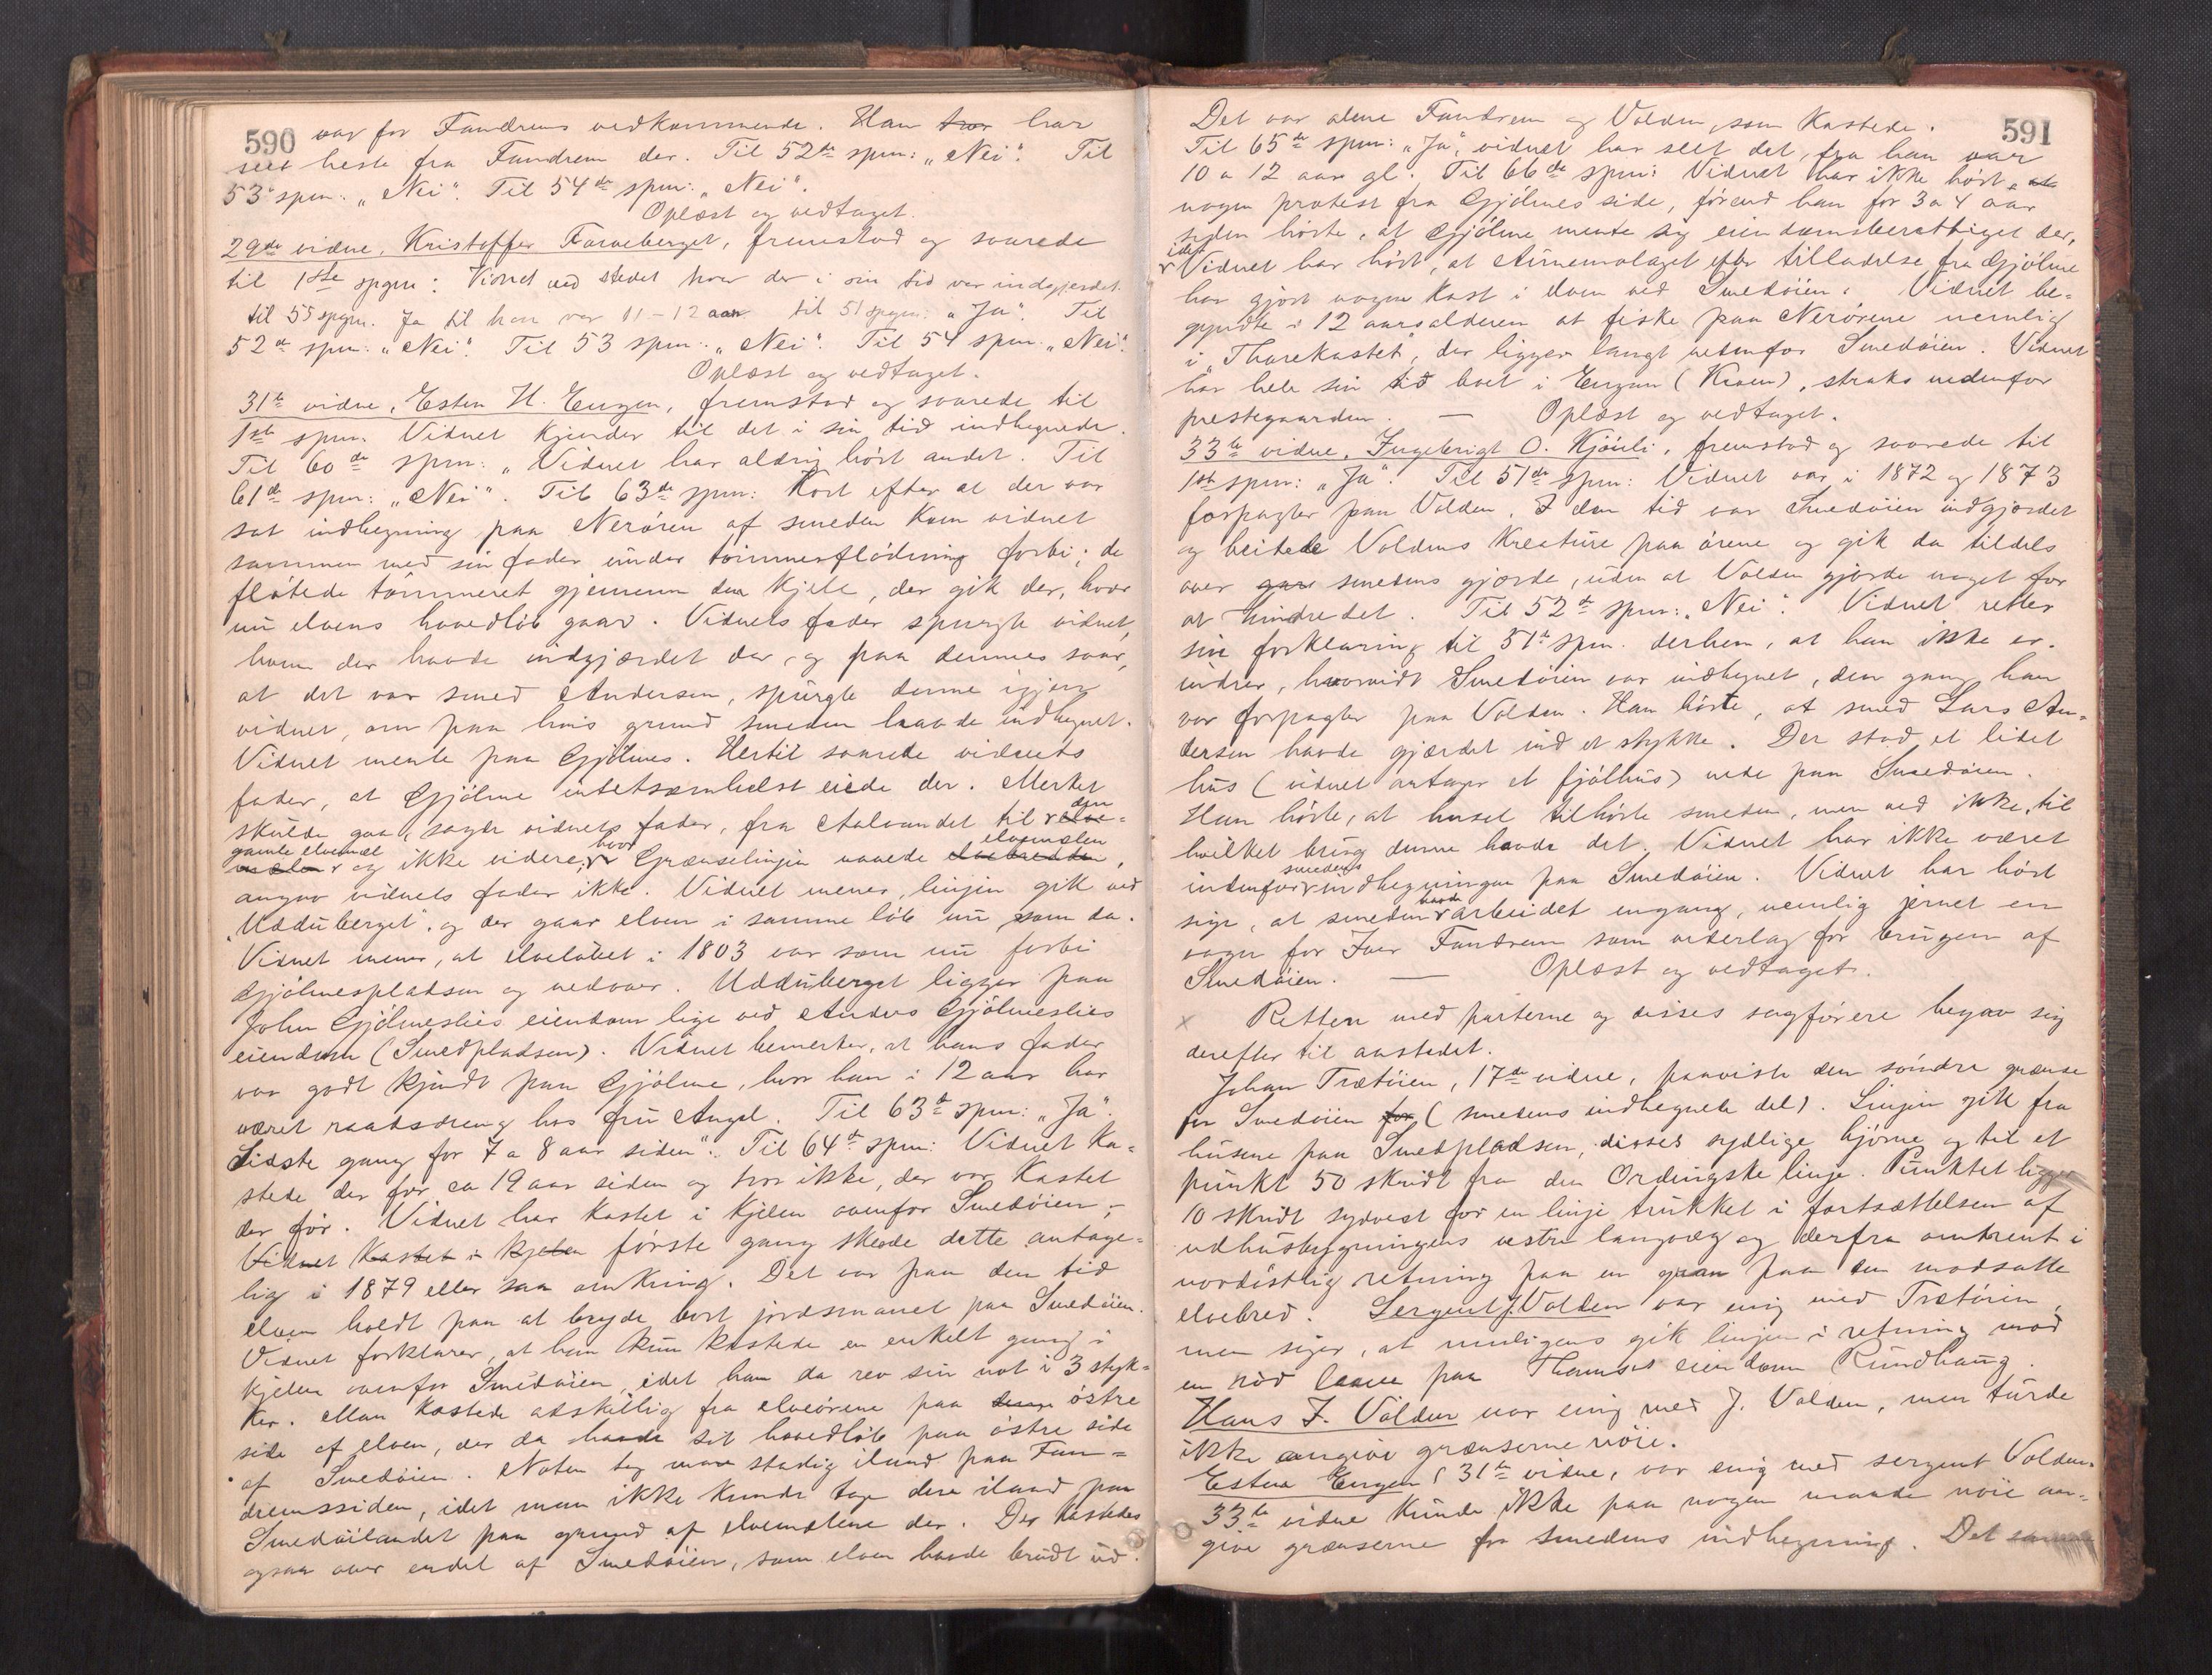 590
var for Fandrems vedkommende. Han tror har
seet heste fra Fandrem der. Til 52de spm: „Nei". Til
53 spm: „Nei". Til 54de spm: „Nei".
Oplæst og vedtaget.
29de vidne, Kristoffer Farveberget, fremstod og svarede
til 1ste spgm: Vidnet ved stedet hvor der i sin tid var indgjerdet
til 55 spgm. Ja til han var 11-12 aar til 51 spgm: „Ja". Til
52de spm: „Nei". Til 53 spm: „Nei". Til 54 spm. „Nei".
Oplæst og vedtaget.
31te vidne, Esten H. Engen, fremstod og svarede til
1ste spm. Vidnet kjender til det i sin tid indhegnede.
Til 60de spm: „Vidnet har aldrig hört andet. Til
61de spm: „Nei". Til 63de spm: Kort efter at der var
sat indhegning paa Nerören af smeden kom vidnet
sammen med sin fader under tömmerflödning forbi; de
flötede tömmeret gjennem den kjele, der gik der, hvor
nu elvens hovedlöb gaar. Vidnets fader spurgte vidnet,
hvem der havde indgjærdet der, og paa dennes svar,
at det var smed Andersen, spurgte denne igjen
vidnet, om paa hvis grund smeden havde indhegnet.
Vidnet mente paa Gjölmes. Hertil svarede vidnets
fader, at Gjölme intetsomhelst eiede der. Merket
skulde gaa, sagde vidnets fader, fra Aalvandet til den elve=
gamle elvemæl og ikke videre; hvor Grænselinjen naaede elvemælen elvebredden,
angav vidnets fader ikke. Vidnet mener, linjen gik ved
„Udduberget", og der gaar elven i samme löb nu som da.
Vidnet mener, at elvelöbet i 1803 var som nu forbi
Gjölmespladsen og nedover. Udduberget ligger paa
John Gjölmeslies eiendom lige ved Anders Gjölmeslies
eiendom (Smedpladsen). Vidnet bemerker, at hans fader
var godt kjendt paa Gjölme, hvor han i 12 aar har
været raadsdreng hos fru Angel. Til 63de spm: „Ja".
Sidste gang for 7 a 8 aar siden". Til 64de spm: Vidnet ka=
stede der for ca 19 aar siden og tror ikke, der var kastet
der för. Vidnet har kastet i kjelen ovenfor Smedöien;
Vidnet kastet i kjelen förste gang skede dette antage=
lig i 1879 eller saa omkring. Det var paa den tid
elven holdt paa at bryde bort jordsmonet paa Smedöien.
Vidnet forklarer, at han kun kastede en enkelt gang i
kjelen ovenfor Smedöien, idet han da rev sin not i 3 styk=
ker. Man kastede adskillig fra elveörene paa denne östre
side af elven, der da havde sit hovedlöb paa östre side
af Smedöien. Noten tog man stadig iland paa Fan=
dremssiden, idet man ikke kunde tage den iland paa
Smedöilandet paa grund af elvemælene der. Der kastedes
ogsaa over endel af Smedöien, som elven havde brudt ud.
591
Det var alene Fandrem og Volden, som kastede.
Til 65de spm: „Ja", vidnet har seet det, fra han var
10 a 12 aar gl. Til 66de spm: Vidnet har ikke hört at
nogen protest fra Gjölmes side, förend han for 3 a 4 aar
siden hörte, at Gjölme mente sig eiendomsberettiget der,
idet Vidnet har hört, at Annemolaget efter tilladelse fra Gjölme
har gjort nogen kast i elven ved Smedöien. Vidnet be=
gyndte i 12 aarsalderen at fiske paa Nerörene nemlig
i „Tharekastet", der ligger langt nedenfor Smedöien. Vidnet
har hele sin tid boet i Engan (Kroen), straks nedenfor
prestegaarden. — Oplæst og vedtaget.
33te vidne, Ingebrigt O. Kjöuli, fremstod og svarede til
1ste spm: „Ja". Til 51de spm: Vidnet var i 1872 og 1873
forpagter paa Volden. I den tid var Smedöien indgjærdet
og beitede Voldens kreature paa örene og gik da tildels
over gjær smedens gjærde, uden at Volden gjorde noget for
at hindre det. Til 52de spm: „Nei". Vidnet retter
sin forklaring til 51de spm. derhen, at han ikke er=
indrer, hvorvidt Smedöien var indhegnet, den gang han
var forpagter paa Volden. Han hörte, at smed Lars An=
dersen havde gjærdet ind et stykke. Der stod et lidet
hus (vidnet antager et fjölhus) nede paa Smedöien.
Han hörte, at huset tilhörte smeden, men ved ikke, til
hvilket brug denne havde det. Vidnet har ikke været
indenfor smedens indhegningen paa Smedöien. Vidnet har hört
sige, at smeden havde arbeidet engang, nemlig jernet en
vogn for Iver Fandrem som vederlag for brugen af
Smedöien. — Oplæst og vedtaget.
x Retten med parterne og disses sagförere begav sig
derefter til aastedet.
Johan Trætöien, 17de vidne, paaviste den söndre grænse
for Smedöien for (smedens indhegnede del). Linjen gik fra
husene paa Smedpladsen, disses sydlige hjörne og til et
punkt 50 skridt fra den Ordingske linje. Punktet ligger
10 skridt sydvest for en linje trukket i fortsættelsen af
udhusbygningens vestre langvæg og derfra omtrent i
nordöstlig retning paa en gran paa den modsatte
elvebred. Sergent J. Volden var enig med Trætöien,
men siger, at muligens gik linjen i retning mod
en röd laave paa Thamses eiendom Rundhaug.
Hans J. Volden var enig med J. Volden, men turde
ikke angive grænserne nöie.
Esten Engen, 31te vidne, var enig med sergent Volden.
33te vidne kunde ikke paa nogen maade nöie an=
give grænserne for smedens indhegning. Det samme